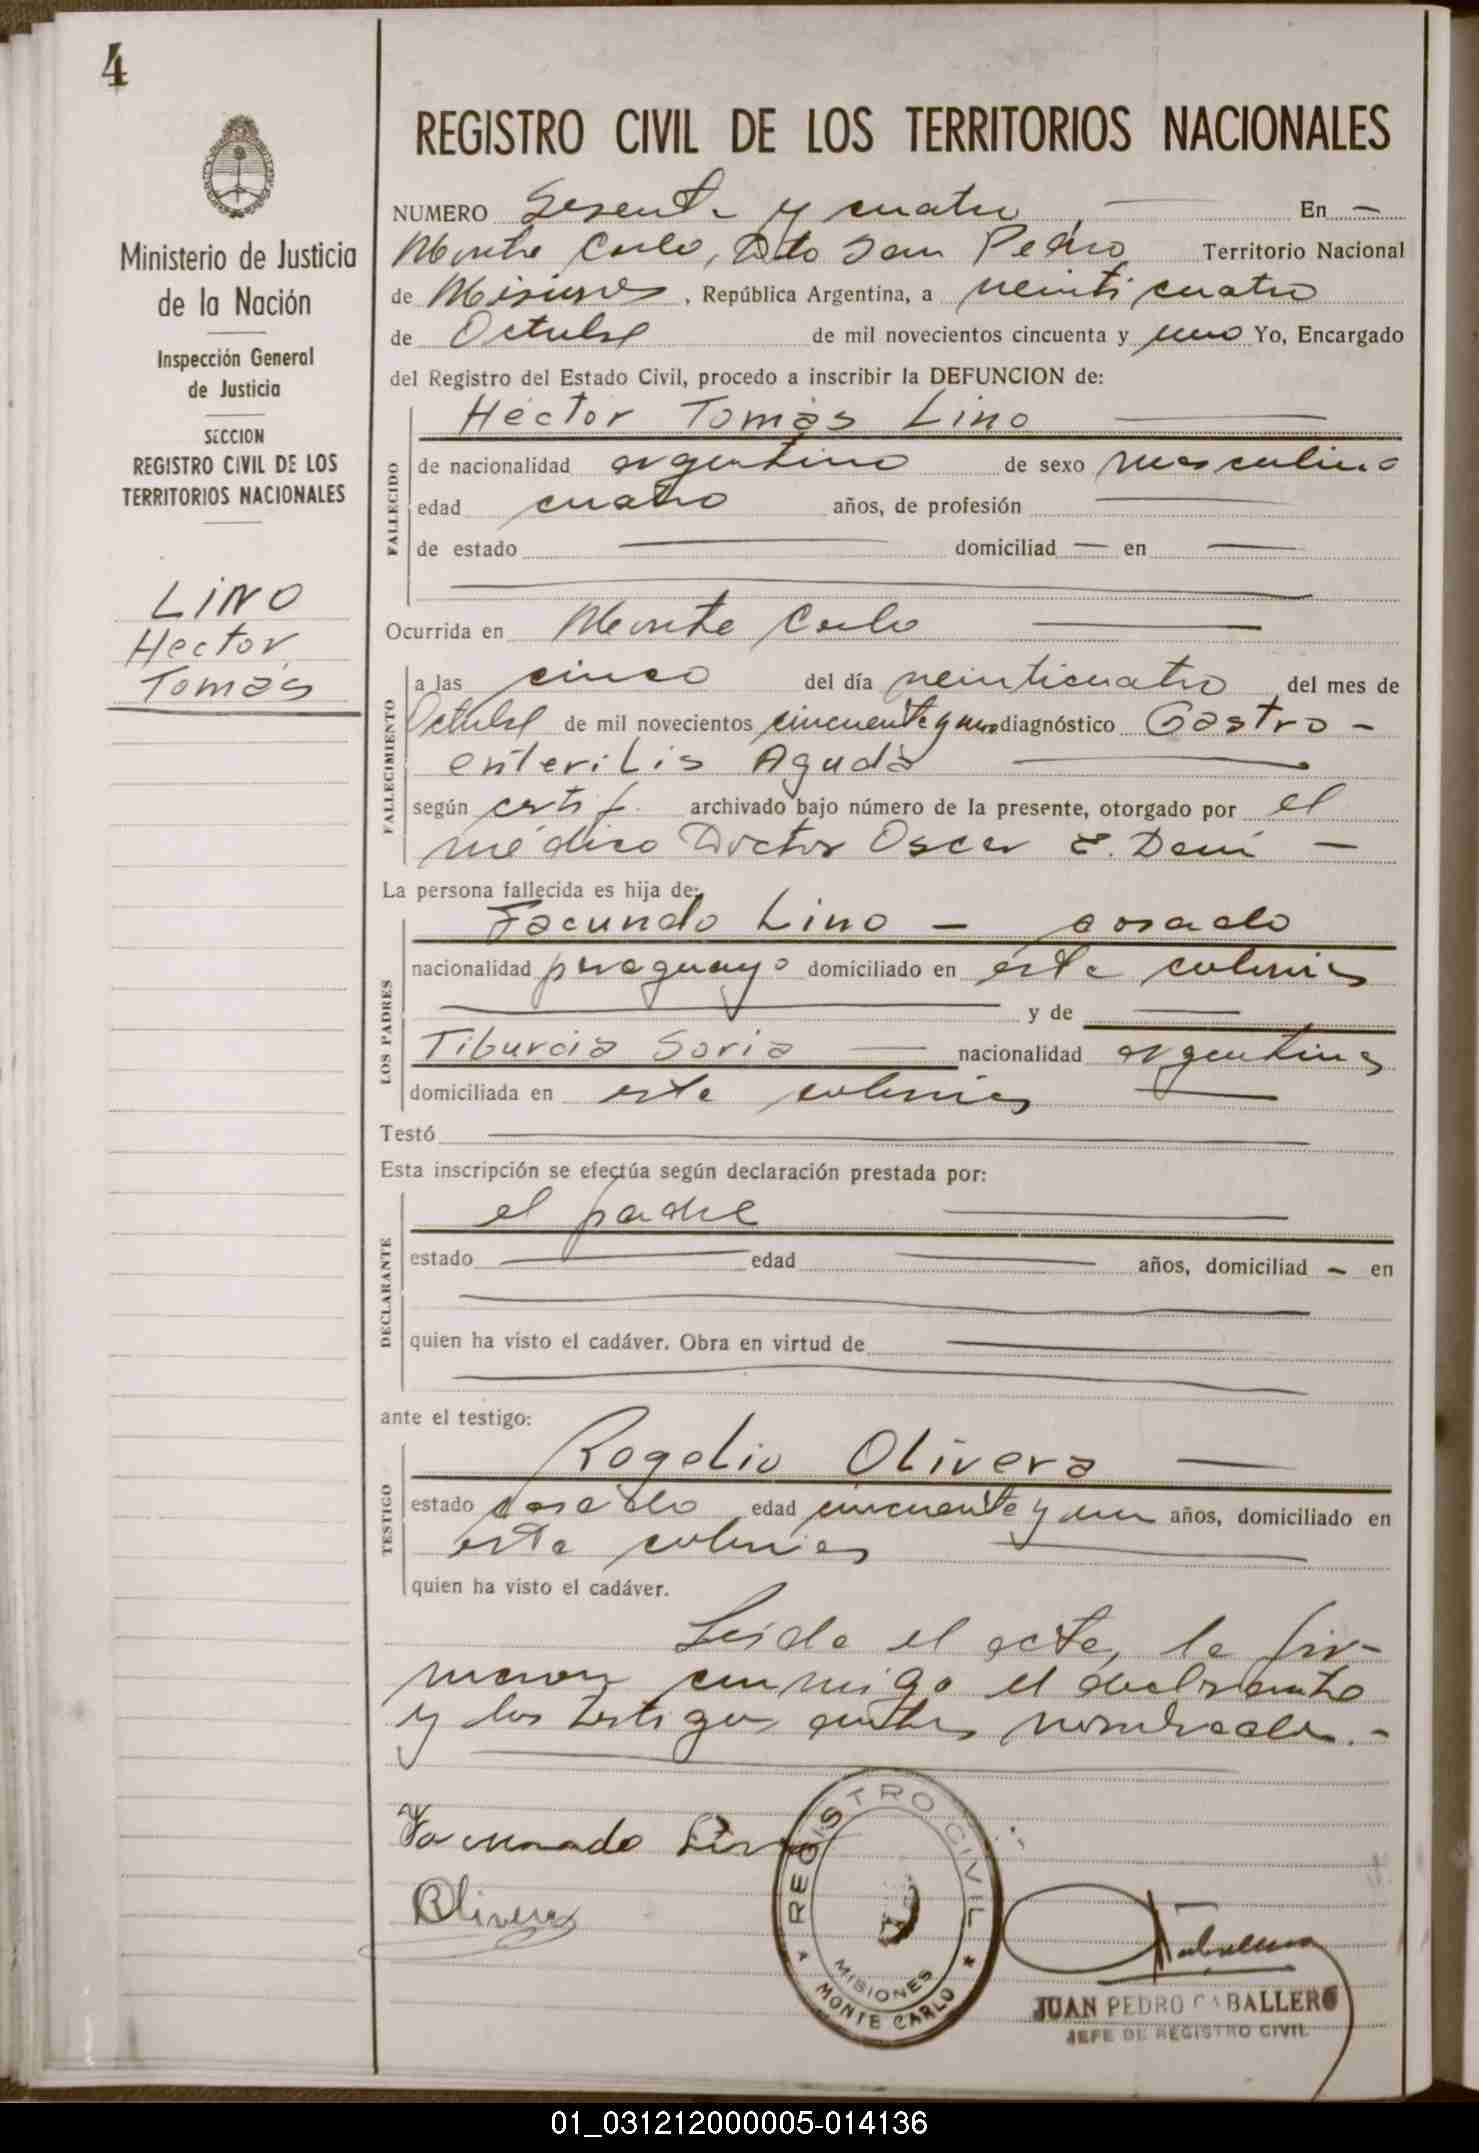 4
Ministerio de Justicia
de la Nación
Inspección General
de Justicia
SECCION
REGISTRO CIVIL DE LOS
TERRITORIOS NACIONALES
LINO
Hector
Tomás
REGISTRO CIVIL DE LOS TERRITORIOS NACIONALES
NUMERO Sesenta y cuatro, — En —
Monte Carlo, Dto San Pedro Territorio Nacional
de Misiones, República Argentina, a veinticuatro
de Octubre de mil novecientos cincuenta y uno Yo, Encargado
del Registro del Estado Civil, procedo a inscribir la DEFUNCION de:
Héctor Tomás Lino —
FALLECIDO
de nacionalidad argentino de sexo masculino
edad cuatro años, de profesión —
de estado — domiciliad — en —
Ocurrida en Monte Carlo —
FALLECIMIENTO
a las cinco del día veinticuatro del mes de
Octubre de mil novecientos cincuenta y uno diagnóstico Gastro-
enteritis Aguda —
según certif. archivado bajo número de la presente, otorgado por el
médico Doctor Oscar E. —
La persona fallecida es hija de:
Facundo Lino — casado
LOS PADRES
nacionalidad paraguayo domiciliado en ésta colonia
— y de —
Tiburcia Soria — nacionalidad argentina
domiciliada en esta colonia —
Testó —
Esta inscripción se efectúa según declaración prestada por:
el padre —
DECLARANTE
estado — edad — años, domiciliad — en
quien ha visto el cadáver. Obra en virtud de —
ante el testigo:
Rogelio Olivera —
TESTIGO
estado casado edad cincuenta y un años, domiciliado en
esta colonia —
quien ha visto el cadáver.
Leída el acta, la fir-
maron conmigo el declarante
y los testigos antes nombrados.-
Facundo Lino
Olivera
REGISTRO CIVIL
MISIONES
MONTE CARLO
JUAN PEDRO CABALLERO
JEFE DE REGISTRO CIVIL
01_031212000005-014136